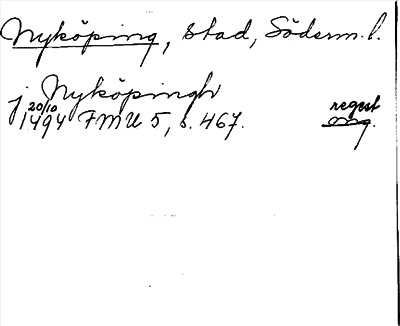 Nyköping, stad, Söderm. l.
j Nyköpingh
20/10 regest
1494 FMU 5, s. 467. orig.